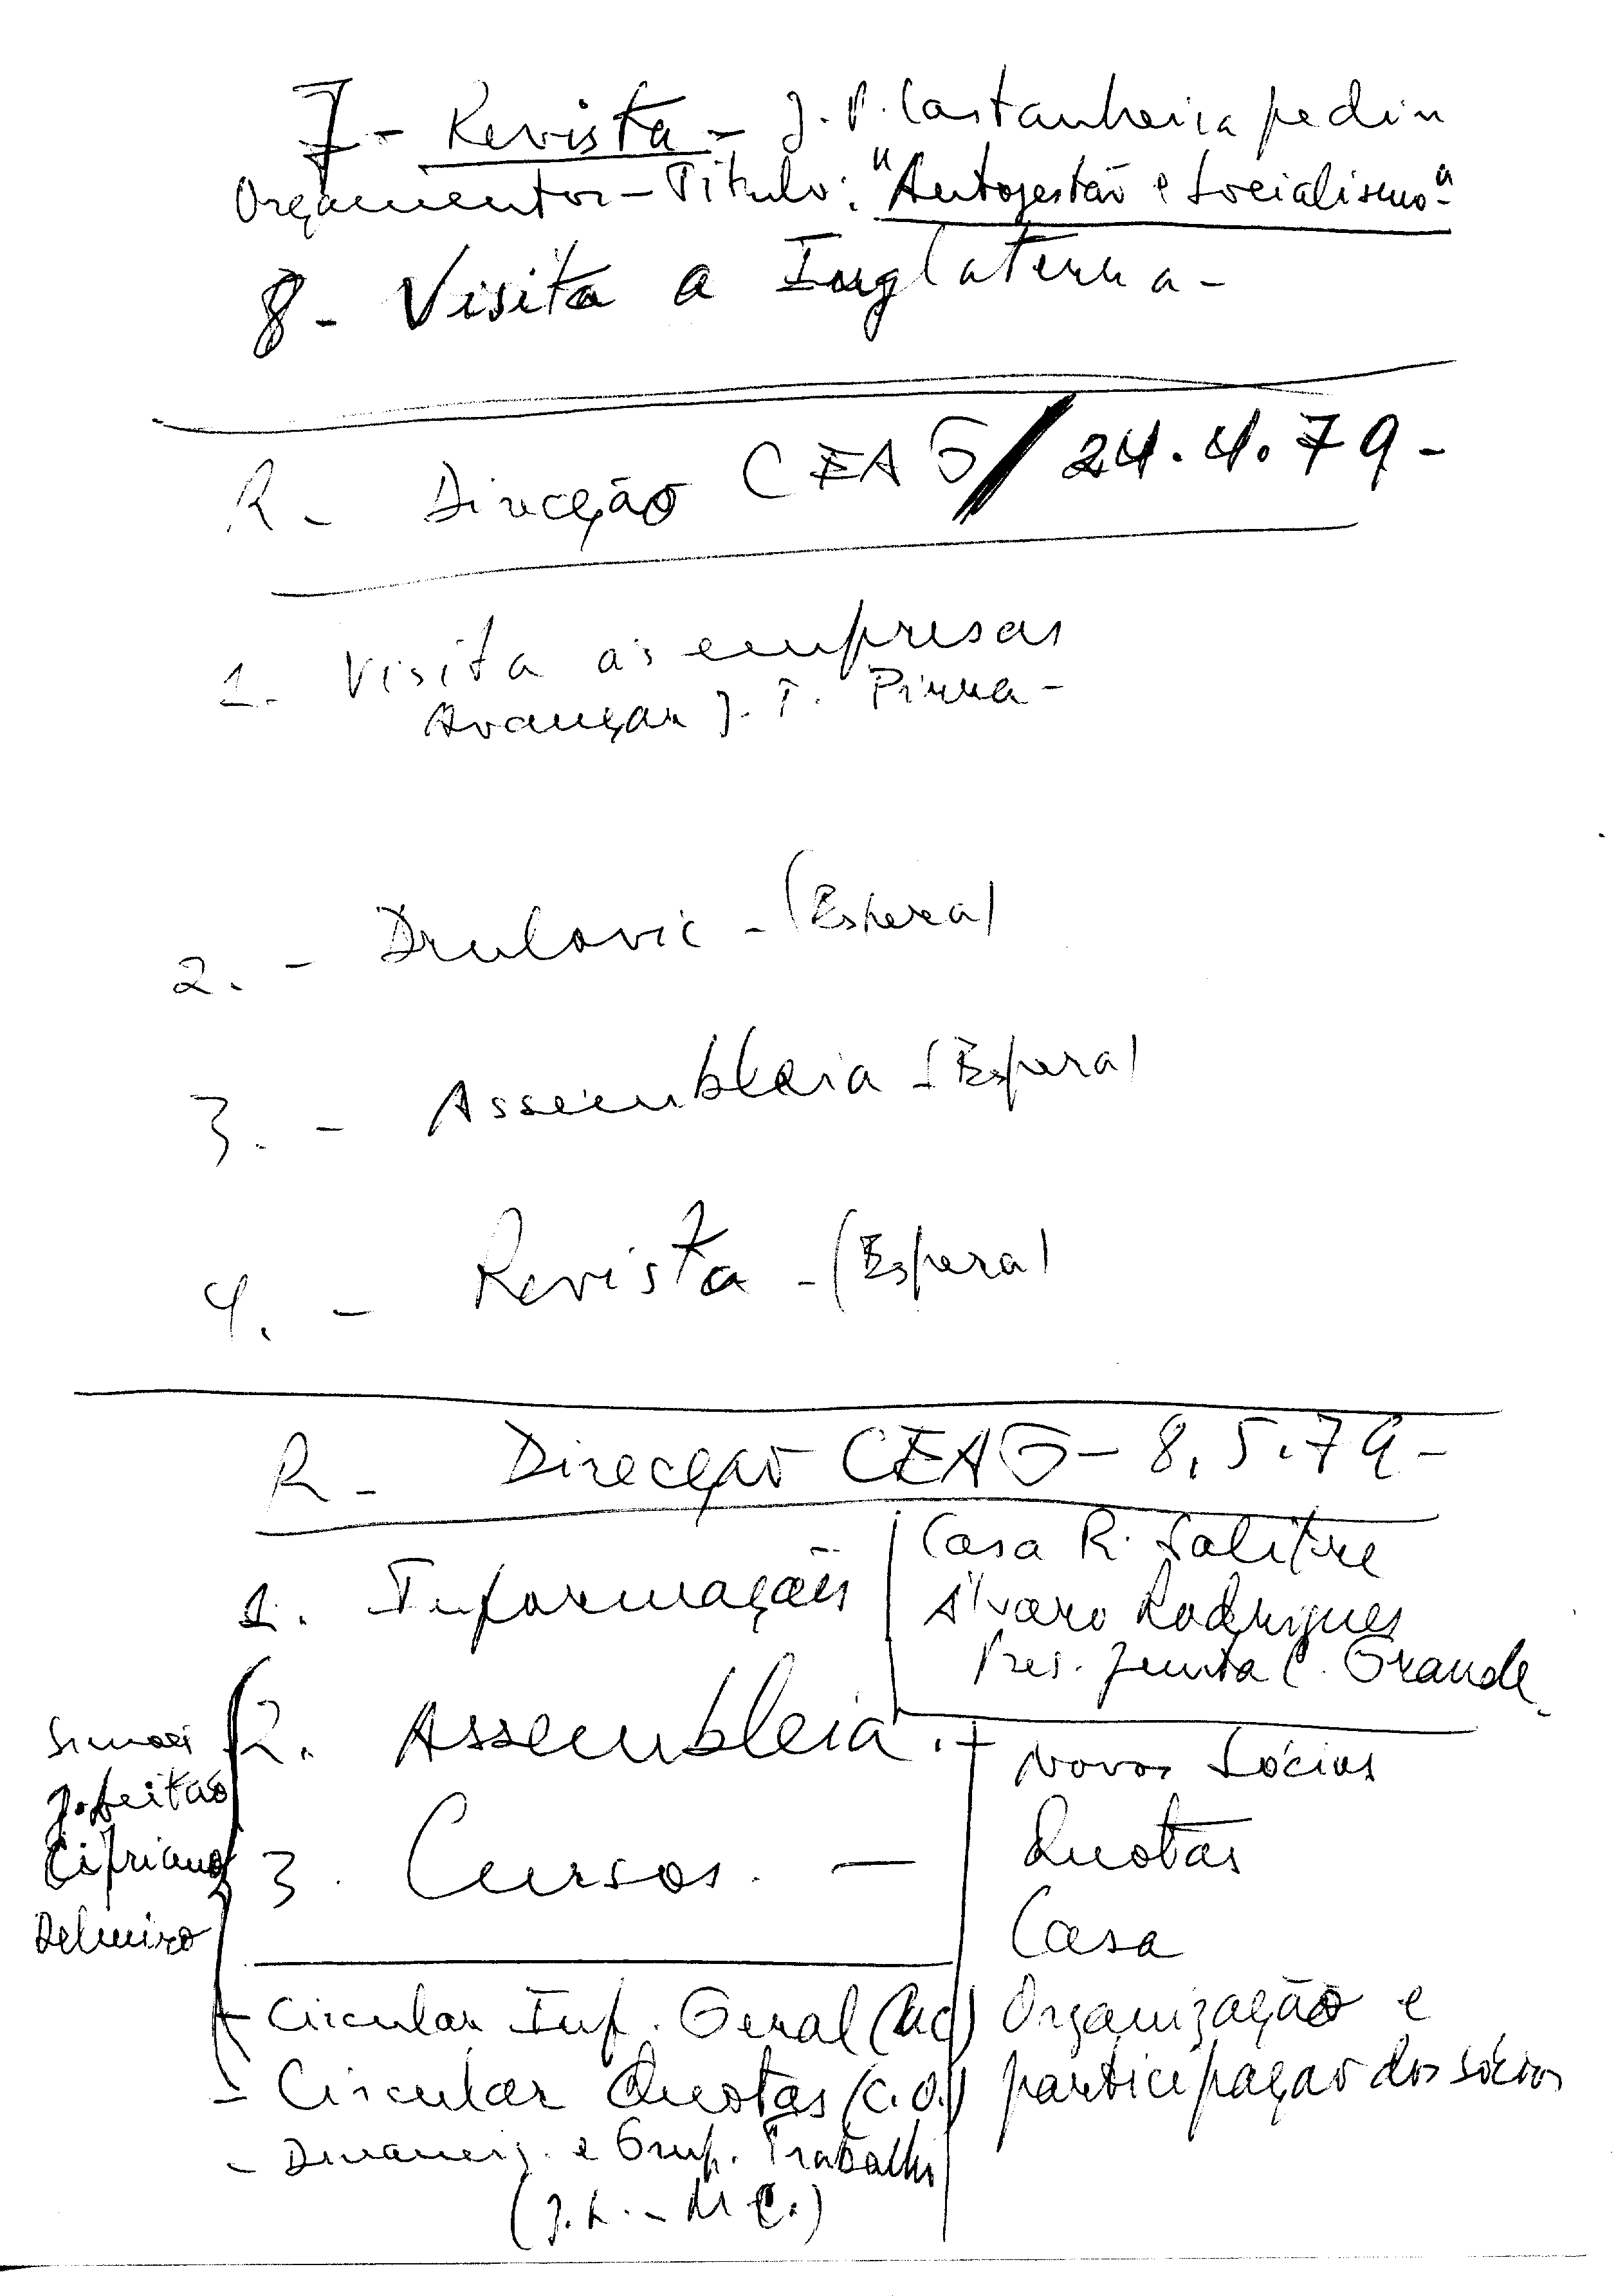 7 - Revista - J. P. Castanheira pedir
Orçamentos - Titulo: "Autogestão e Socialismo"-
8 - Visita a Inglaterra -
R - Direcção CEAG / 24.4.79 -
1. Visita às empresas
Avançar J. T.
2. - Drulovic - (Espera)
3. - Assembleia - (Espera)
4. - Revista - (Espera)
R - Direcção CEAG - 8.5.79 -
1. Informações
Casa R. Salitre
Álvaro Rodrigues
Pres. Junta C. Grande
2. Assembleia. +
3. Cursos. -
J. Leitão
Cipriano
Delmiro
Novos Sócios
Quotas
Casa
Organização e
participação dos sócios
- Circular Inf. Geral
- Circular Quotas (C.O.)
- Dinamiz. e Grup. Trabalho
(J. L. - M C.)